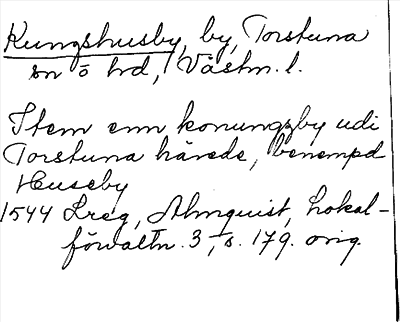 Kungshusby, by, Torstuna
sn o hd, Västm. l.
Item enn konungzby udi
Torstuna härede, benempd
Huseby
1544 Lreg, Almquist, Lokal-
förvaltn. 3, s. 179. orig.